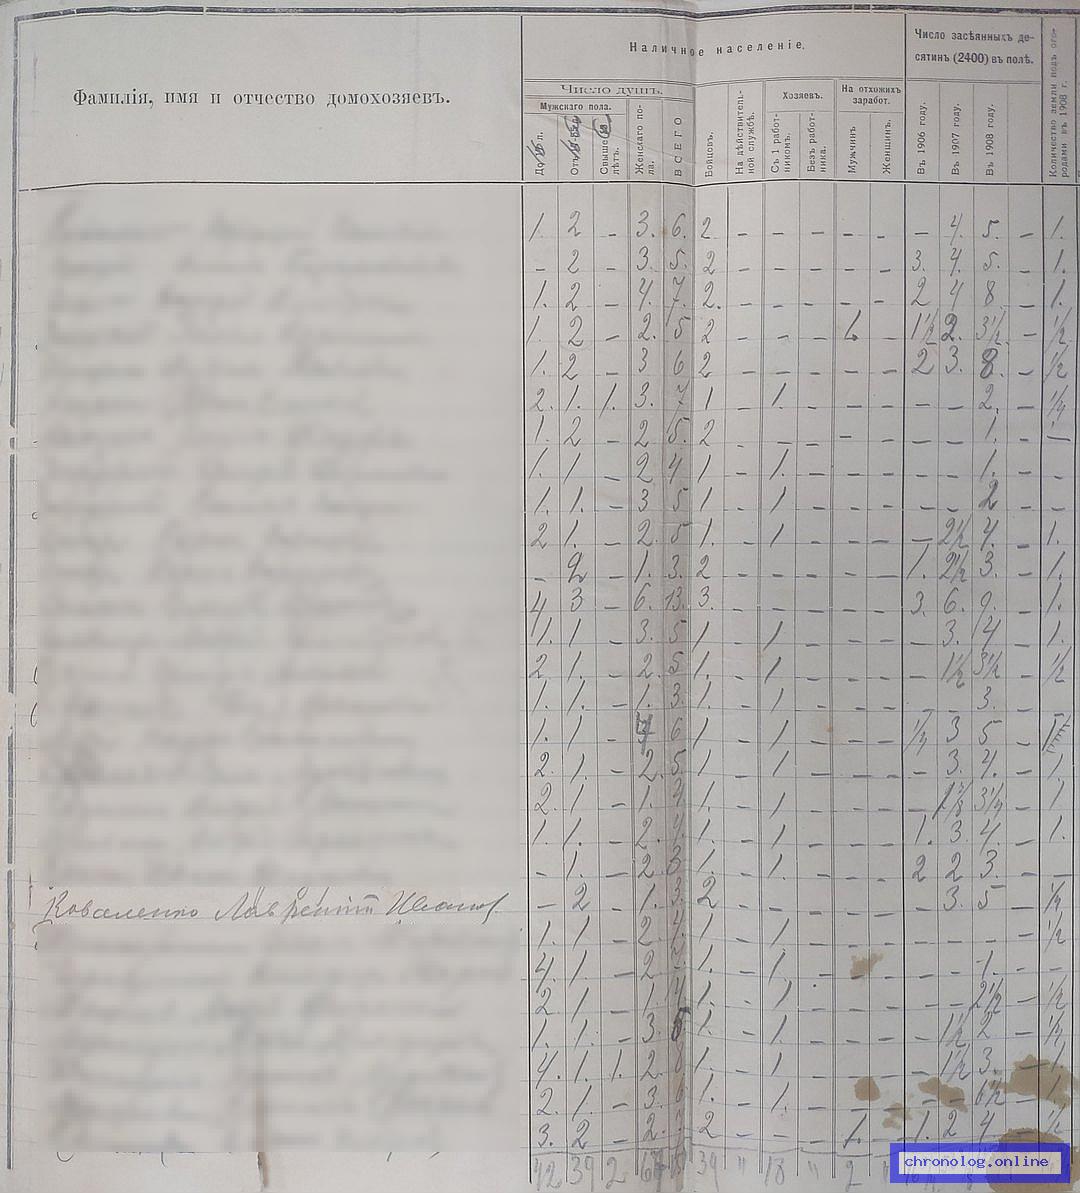 Фамилія, имя и отчество домохозяевъ.
Наличное населеніе.
Число душъ.
Мужскаго пола.
До л.
От
Свыше лѣтъ.
Женскаго по-
ла.
ВСЕГО
Бойцовъ.
На дѣйствитель-
ной службѣ.
Хозяевъ.
Съ 1 работ-
никомъ.
Безъ работ-
ника.
На отхожихъ
заработ.
Мужчинъ
Женщинъ.
Число засѣянныхъ де-
сятинъ (2400) въ полѣ.
Въ 1906 году.
Въ 1907 году.
Въ 1908 году.
Количество земли подъ ого-
родами въ 1908 г.
1. 2 – 3. 6. 2 – – – – – – 4. 5. – 1.
– 2 – 3. 5. 2 – – – – – 3. 4. 5. – 1.
1. 2 – 4. 7. 2. – – – – – 2 4 8 – 1.
1. 2 – 2. 5 2 – – – – 1½ 2. 3½ – ½
1. 2 – 3 6 2 – – – – – 2 3. 8. – ½
2. 1. 1. 3. 7 1 – 1. – – – – – 2. – ¼
1. 2 – 2 5. 2 – – – – – – – 1. – –
1. 1 – 2 4 1 – 1. – – – – – 1. – –
1. 1. – 3 5 1 – 1 – – – – – 2 – –
2 1. – 2. 5 1. – 1 – – – – 2½ 4. – 1.
– 2 – 1. 3. 2 – – – – – 1. 2½ 3. – 1.
4 3 – 6. 13. 3. – – – – – 3. 6. 9. – 1.
1. 1 – 3. 5 1 – 1 – – – – 3. 4 – 1.
2 1. – 2. 5 1. – 1 – – – – 1½ 3½ – ½
1. 1. – 1. 3. 1. – 1 – – – – – 3. – –
1. 1 – 6 1 – 1 – – – ¼ 3 5 –
2. 1. – 2. 5. 1 – 1 – – – – 3. 4. – 1.
2. 1 – 1. 4 1. – 1 – – – – 3¼ – 1
1. 1. – 2. 4. 1. – 1 – – – 1. 3. 4. – 1.
– 1. – 2 3 1. – 1. – – – 2 2 3. – –
Коваленко Лаврентій Иванов. – 2 – 1. 3. 2 – – – – – – 3. 5 – ¼
1. 1 – 2 4. 1 – 1 – – – – – – – ½
4. 1 – 2 7. 1. – 1. – – – – 1. – –
2. 1 – 1. 4 1. – 1. – – – – – 2½ – ½
1. 1. – 3. 5 1. – 1. – – – – 1½ 2 – ¼
4. 1. 1. 2 8 1. – 1 – – – – 1½ 3. – 1.
2. 1. – 3. 6 1. – 1. – – – – – 6½ – 1.
3. 2 – 2. 7 2 – – – 1. – 1. 2 4 – ½
42 39 2 39 " 18 " 2 "
chronolog.online